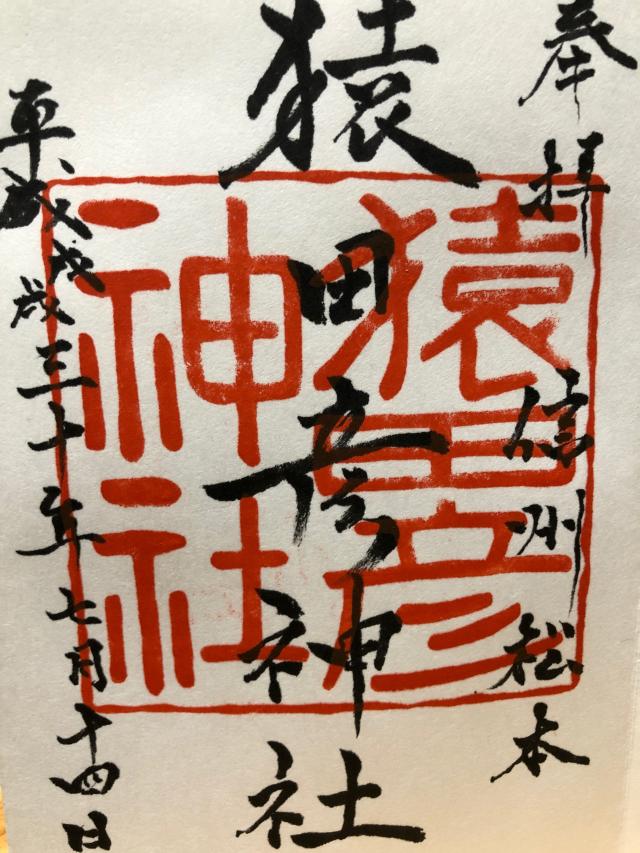 奉拝 信州松本
猿田彦神社
猿田彦
神社
平成戊戌歳三十年七月十四日